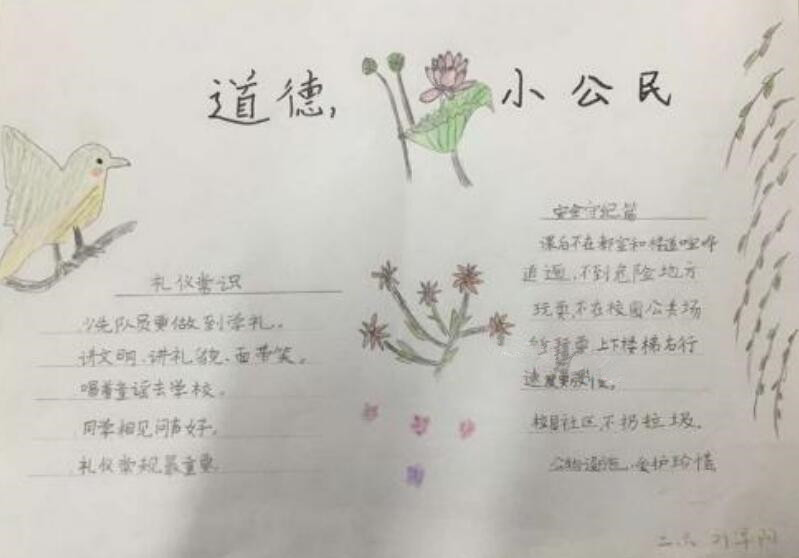 道德,小公民
礼仪常识
少先队员要做到学礼。
讲文明、讲礼貌、面带笑。
唱着童谣去学校。
同学相见问声好。
礼仪常规最重要
安全守纪篇
课后不在教室和楼道喧哗
追逼,不到危险地方
玩耍,不在校园公共场
玩耍 上下楼梯右行
速度要慢
校园社区,不扔垃圾。
公物设施,爱护珍惜
二六